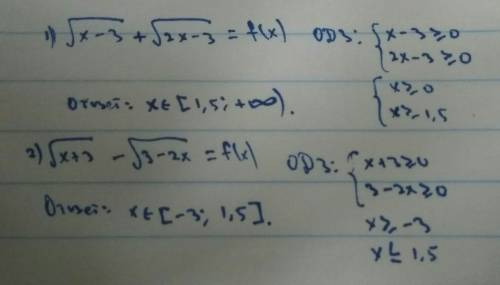 1) √x-3 + √2x-3 = f(x) ОДЗ: { x-3 ≥ 0
2x-3 ≥ 0
Ответ: x ∈ [1,5; +∞). { x ≥ 0
x ≥ 1,5
2) √x+3 - √3-2x = f(x) ОДЗ: { x+3 ≥ 0
3-2x ≥ 0
Ответ: x ∈ [-3; 1,5].
x ≥ -3
x ≤ 1,5